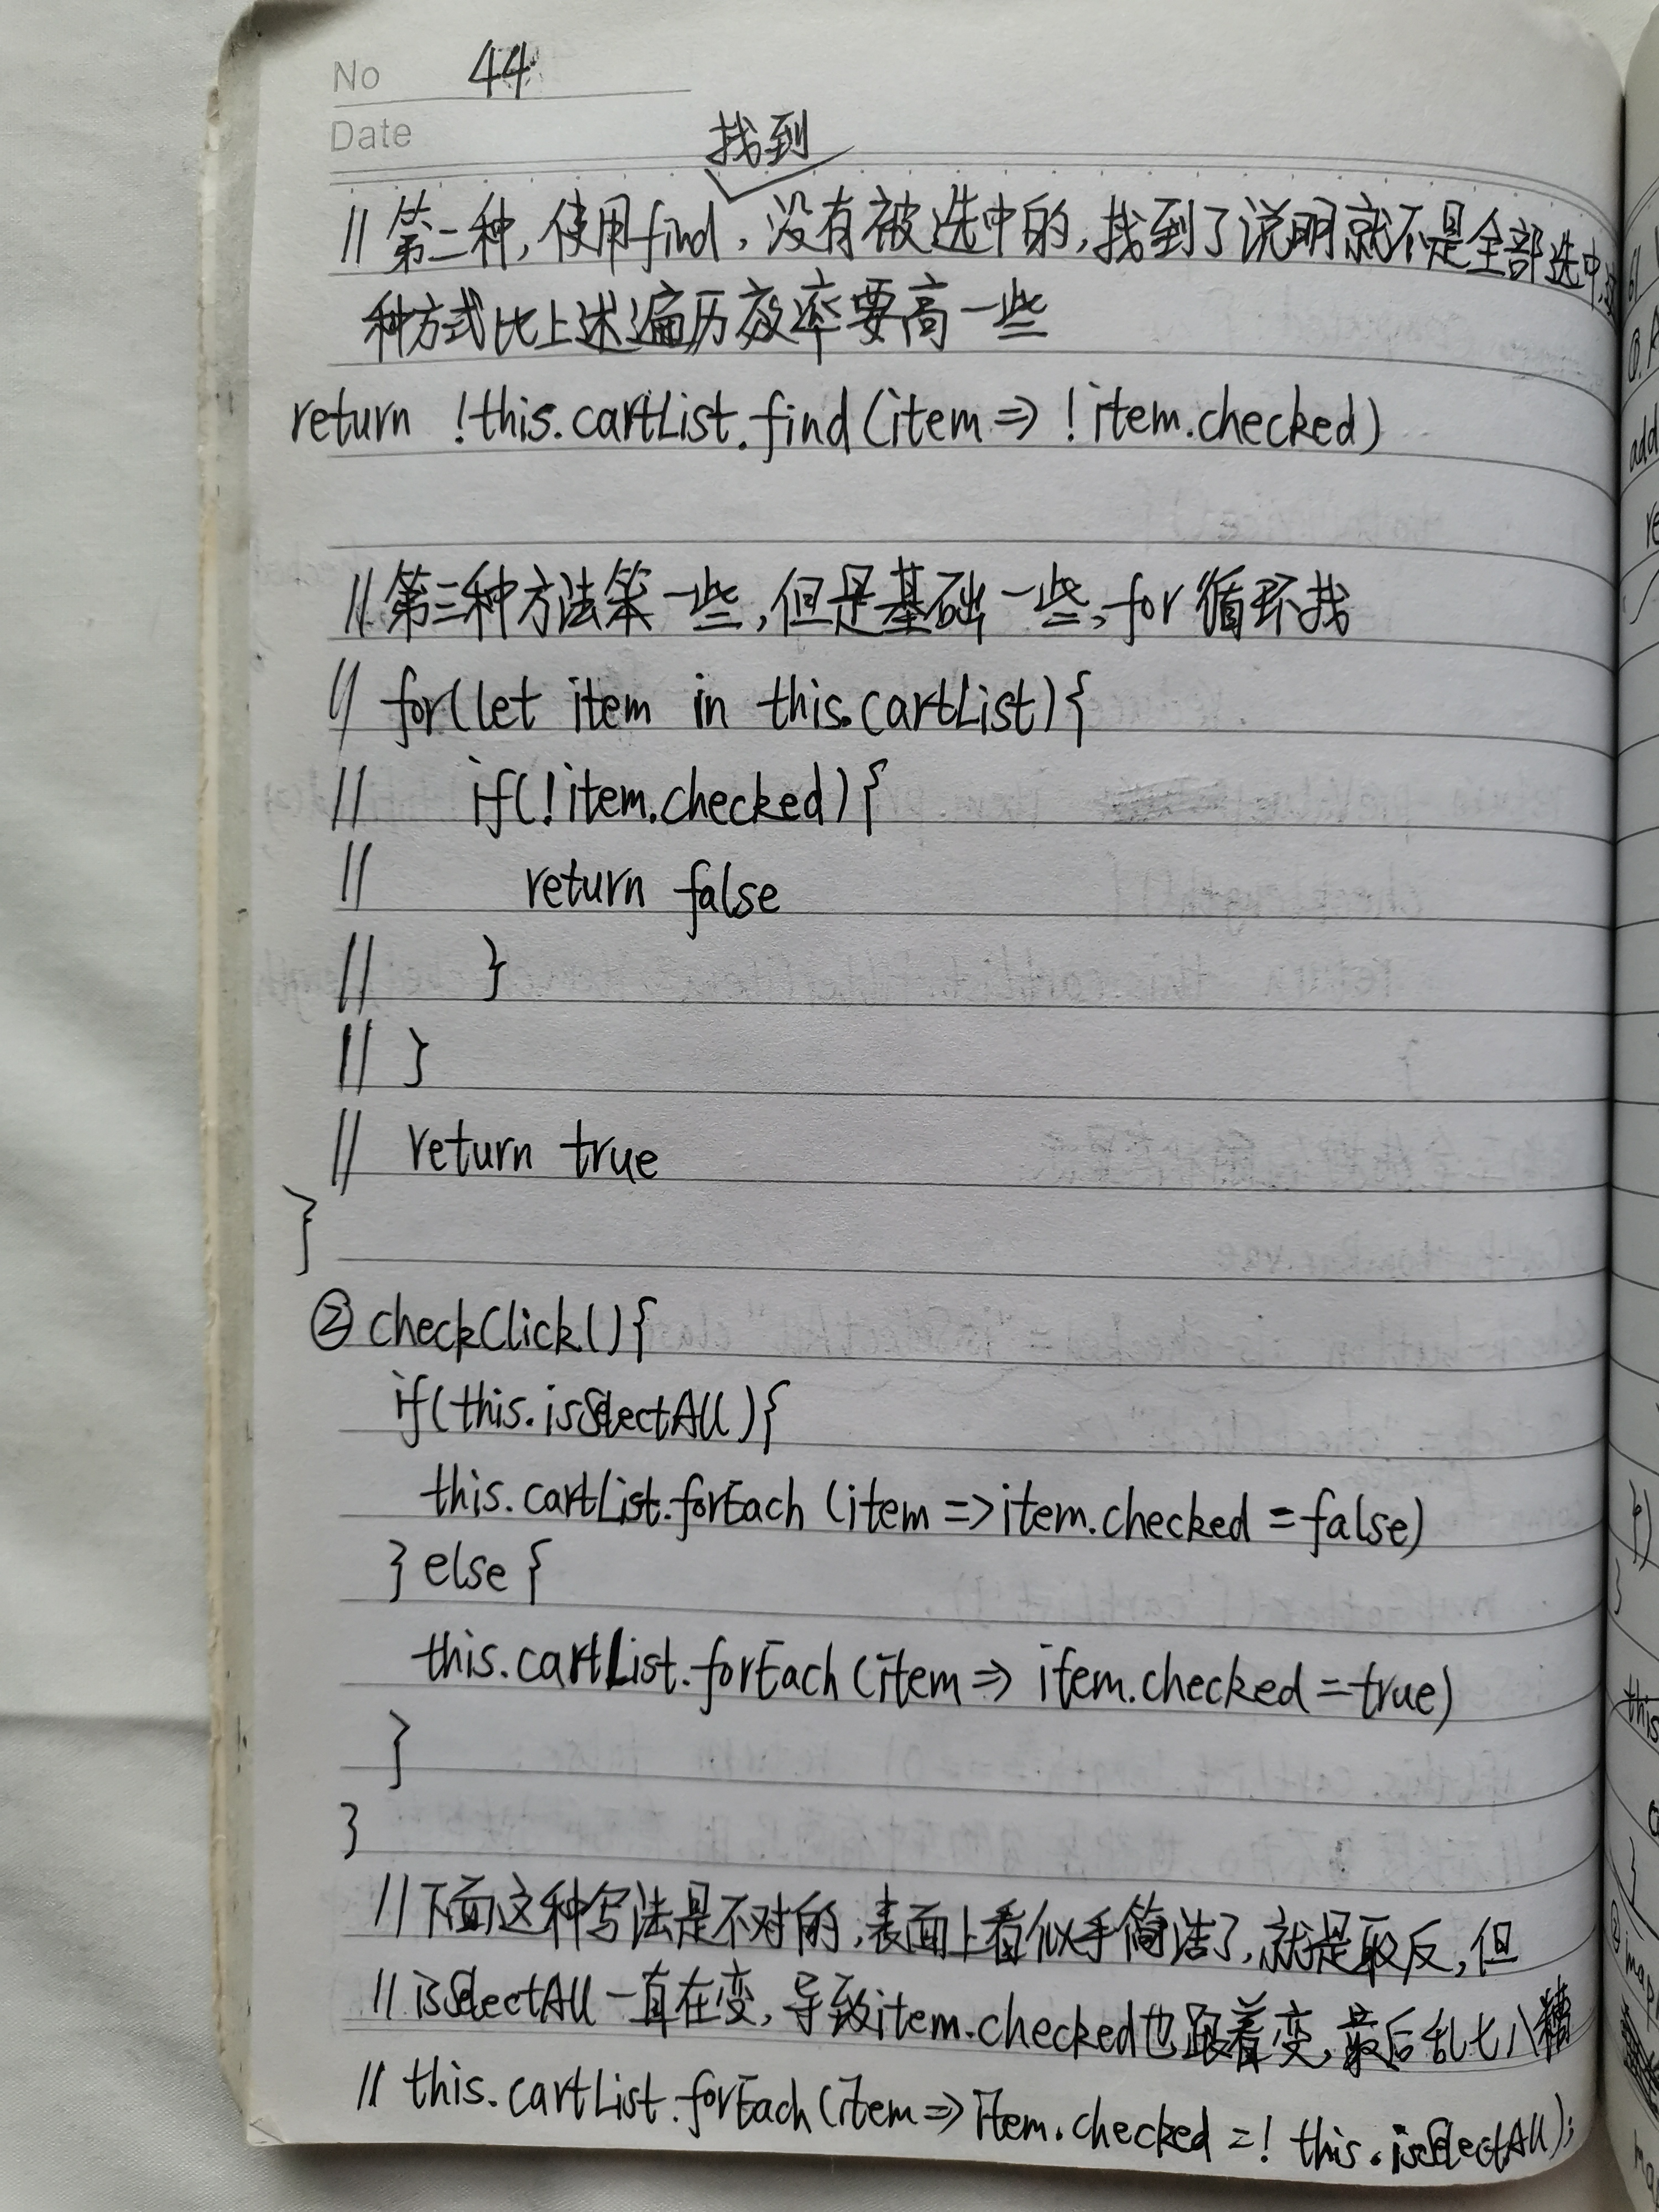 No 44
Date
找到
// 第二种,使用find,没有被选中的,找到了说明就不是全部选中,这
种方式比上述遍历效率要高一些
return !this.cartList.find(item => !item.checked)
// 第三种方法笨一些,但是基础一些,for循环找
// for(let item in this.cartList){
// if(!item.checked){
// return false
// }
// }
// return true
}
② checkClick(){
if(this.isSelectAll){
this.cartList.forEach(item => item.checked = false)
} else {
this.cartList.forEach(item => item.checked = true)
}
}
// 下面这种写法是不对的,表面上看似乎简洁了,就是取反,但
// isSelectAll一直在变,导致item.checked也跟着变,最后乱七八糟
// this.cartList.forEach(item => item.checked = ! this.isSelectAll);